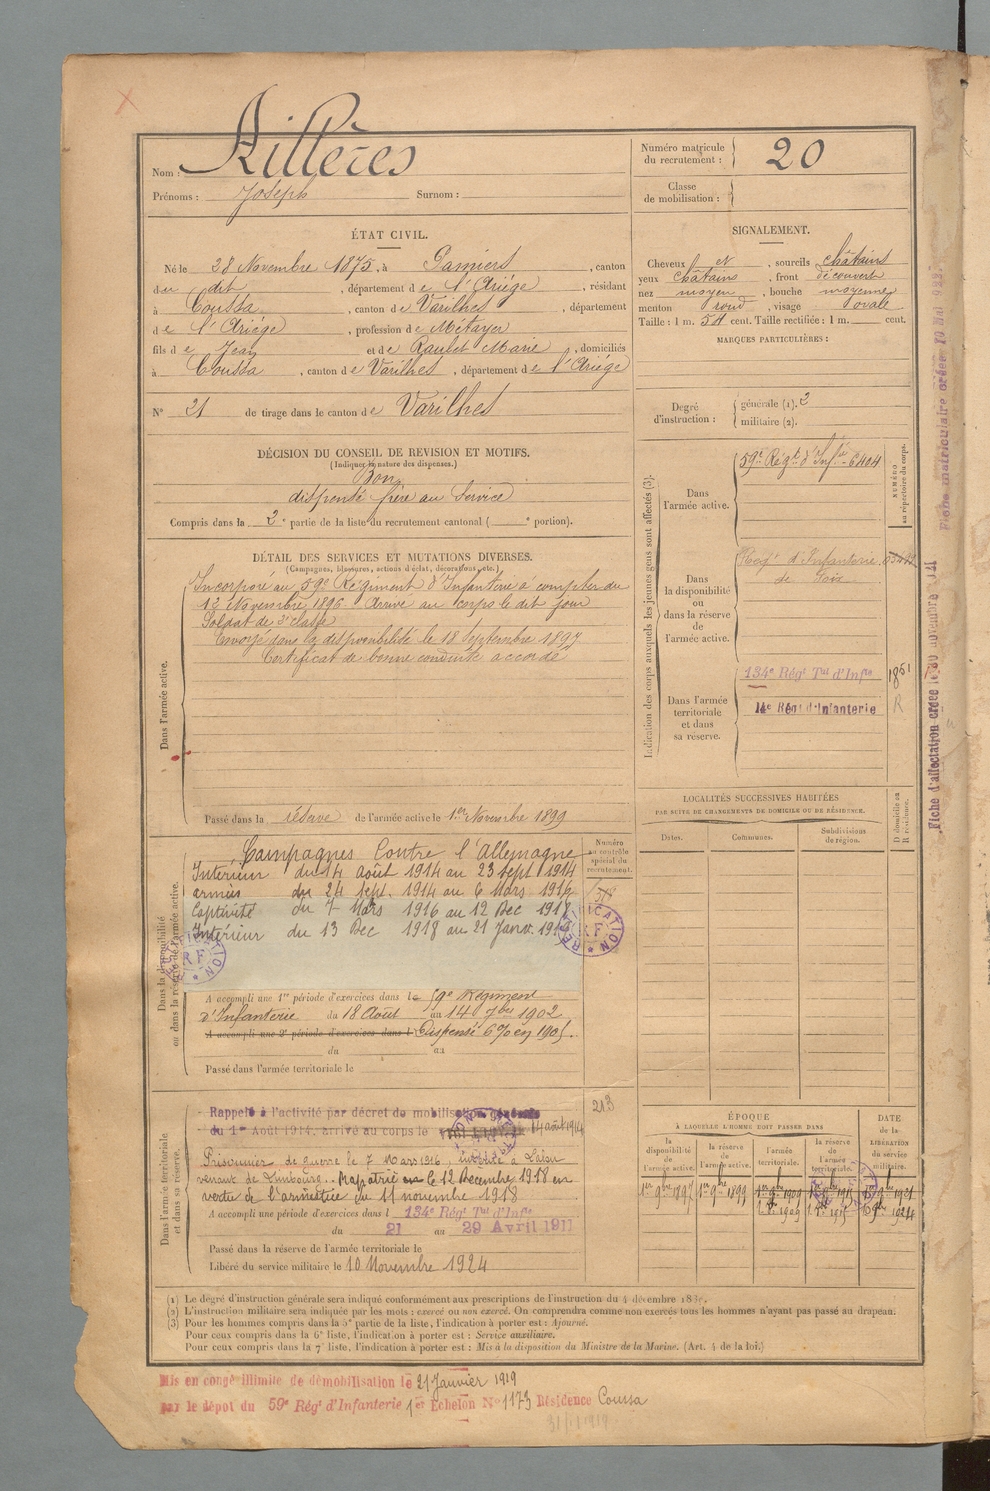 Nom : Rillères
Prénoms : Joseph Surnom :
Numéro matricule du recrutement : 20
Classe de mobilisation :
ÉTAT CIVIL.
Né le 28 Novembre 1875, à Pamiers, canton
du dit, département de l'Ariége, résidant
à Coussa, canton de Varilhes, département
de l'Ariége, profession de Métayer
fils de Jean et de Raulet Marie, domiciliés
à Coussa, canton de Varilhes, département de l'Ariége
N° 21 de tirage dans le canton de Varilhes
SIGNALEMENT.
Cheveux et, sourcils châtains
yeux châtains, front découvert
nez moyen, bouche moyenne
menton rond, visage ovale
Taille : 1 m. 54 cent. Taille rectifiée : 1 m. cent.
MARQUES PARTICULIÈRES :
Degré d'instruction : générale (1). 2
militaire (2).
DÉCISION DU CONSEIL DE REVISION ET MOTIFS.
(Indiquer la nature des dispenses.)
Bon
dispensé frère au Service
Compris dans la 2e partie de la liste du recrutement cantonal ( e portion).
DÉTAIL DES SERVICES ET MUTATIONS DIVERSES.
(Campagnes, blessures, actions d'éclat, décorations, etc.)
Dans l'armée active.
Incorporé au 59e Régiment d'Infanterie à compter du
12 Novembre 1896 Arrivé au corps le dit jour
Soldat de 2e classe
Envoyé dans la disponibilité le 18 Septembre 1897
Certificat de bonne conduite accordé
Passé dans la réserve de l'armée active le 1er Novembre 1899
Indication des corps auxquels les jeunes gens sont affectés (3).
NUMÉRO au répertoire du corps.
Dans l'armée active.
59e Régt d'Infie 6404
Dans la disponibilité ou dans la réserve de l'armée active.
Régt d'Infanterie
de Foix
Dans l'armée territoriale et dans sa réserve.
134e Régt Tal d'Infie
14e Régt d'Infanterie
R
LOCALITÉS SUCCESSIVES HABITÉES
PAR SUITE DE CHANGEMENTS DE DOMICILE OU DE RÉSIDENCE.
Dates.
Communes.
Subdivisions de région.
D domicile ou R résidence.
Dans la disponibilité ou dans la réserve de l'armée active.
Numéro au contrôle spécial du recrutement.
Campagnes Contre l'Allemagne
Intérieur du 14 août 1914 au 23 sept 1914
armées du 24 sept. 1914 au 6 Mars 1916
Captivité du 7 Mars 1916 au 12 Dec 1918
Intérieur du 13 Dec 1918 au 21 Janv. 1919
RECTIFICATION RF
RECTIFICATION RF
A accompli une 1re période d'exercices dans le 59e Régiment
d'Infanterie du 18 Août au 14 7bre 1902
A accompli une 2e période d'exercices dans l Dispensé 6% en 1905.
du au
Passé dans l'armée territoriale le
Dans l'armée territoriale et dans sa réserve.
213
Rappelé à l'activité par décret de mobilisation générale
du 1er Août 1914, arrivé au corps le 14 août 1914
Prisonnier de guerre le 7 Mars 1916, interné à
venant de Limbourg. Rapatrié le 12 Décembre 1918 en
vertu de l'armistice du 11 novembre 1918
A accompli une période d'exercices dans l 134e Régt Tal d'Infie
du 21 au 29 Avril 1911
Passé dans la réserve de l'armée territoriale le
Libéré du service militaire le 10 Novembre 1924
ÉPOQUE
À LAQUELLE L'HOMME DOIT PASSER DANS
DATE de la LIBÉRATION du service militaire.
la disponibilité de l'armée active.
la réserve de l'armée active.
l'armée territoriale.
la réserve de l'armée territoriale.
1er 9bre 1897 1er 9bre 1899 1er 9bre 1909 1er 9bre 1915 1er 9bre 1921
(1) Le degré d'instruction générale sera indiqué conformément aux prescriptions de l'instruction du 4 décembre 1889.
(2) L'instruction militaire sera indiquée par les mots : exercé ou non exercé. On comprendra comme non exercés tous les hommes n'ayant pas passé au drapeau.
(3) Pour les hommes compris dans la 5e partie de la liste, l'indication à porter est : Ajourné.
Pour ceux compris dans la 6e liste, l'indication à porter est : Service auxiliaire.
Pour ceux compris dans la 7e liste, l'indication à porter est : Mis à la disposition du Ministre de la Marine. (Art. 4 de la loi.)
Mis en congé illimité de démobilisation le 21 Janvier 1919
par le dépôt du 59e Régt d'Infanterie 1er Echelon N° 1173 Résidence Coussa
Fiche matriculaire créée 10 Mai 192
Fiche d'affectation créée le 30 novembre 1921